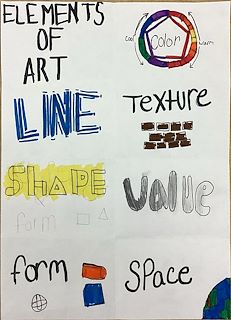 ELEMENTS
OF
ART
Color
Cool
warm
LINE
TEXTURE
SHAPE
form
Value
form
SPACE